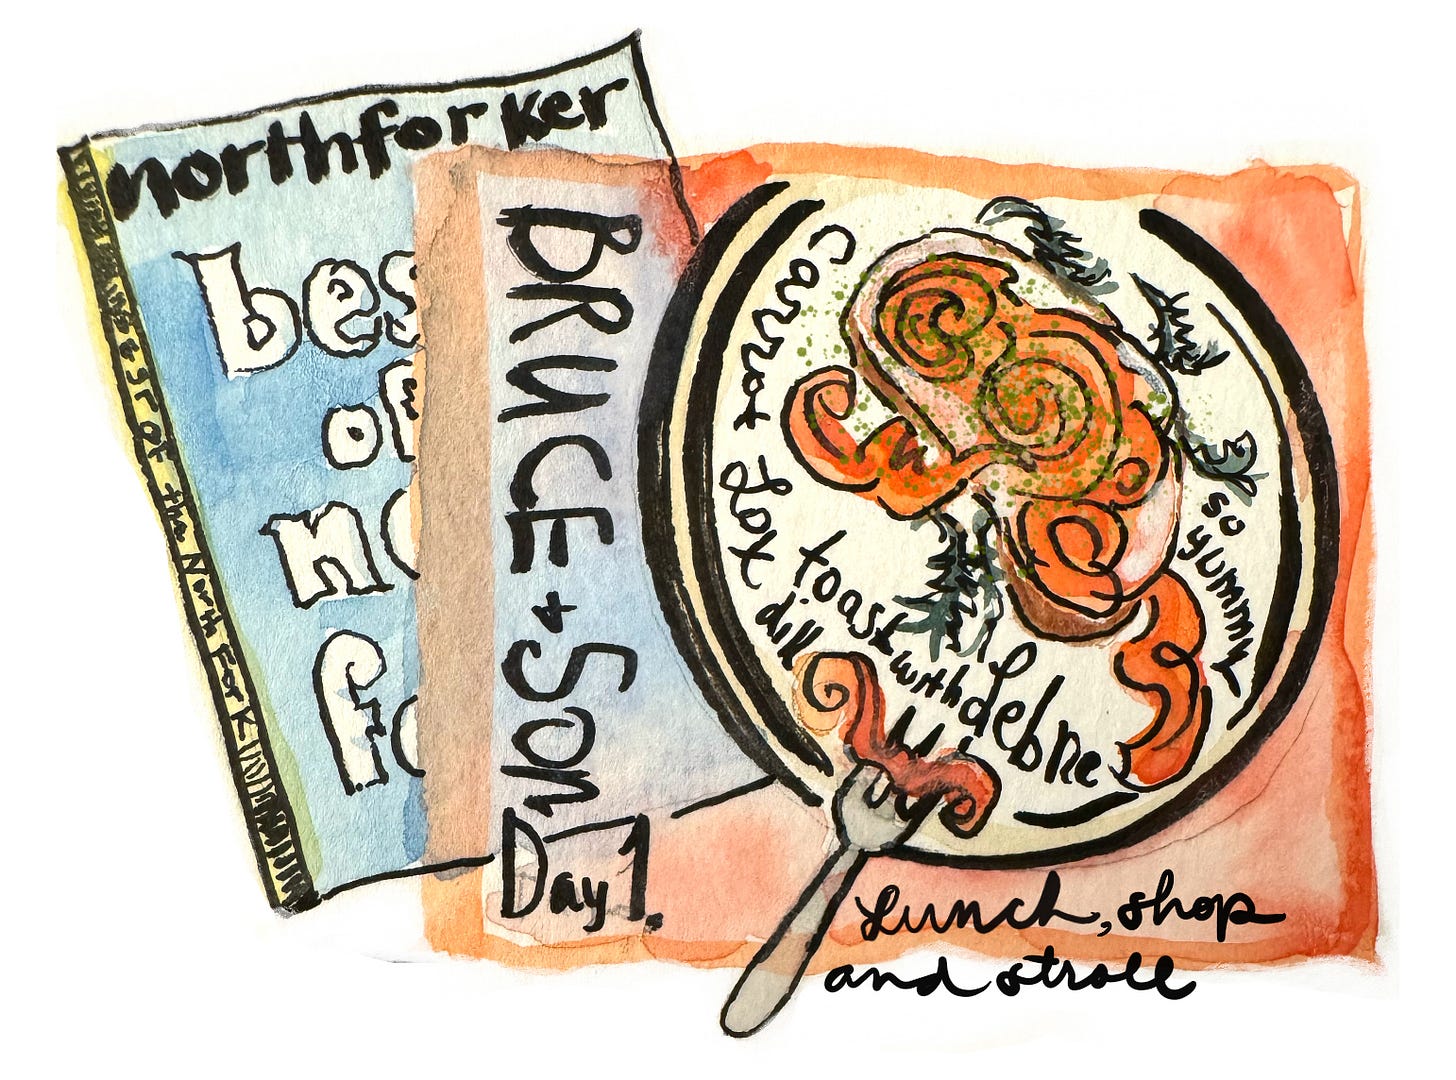 northforker
bes
of
no
fo
best of the North Fork
BRUCE + SON
Day 1.
Carrot Lox
toast with Lebne
dill
so
yummy
Lunch, shop
and stroll